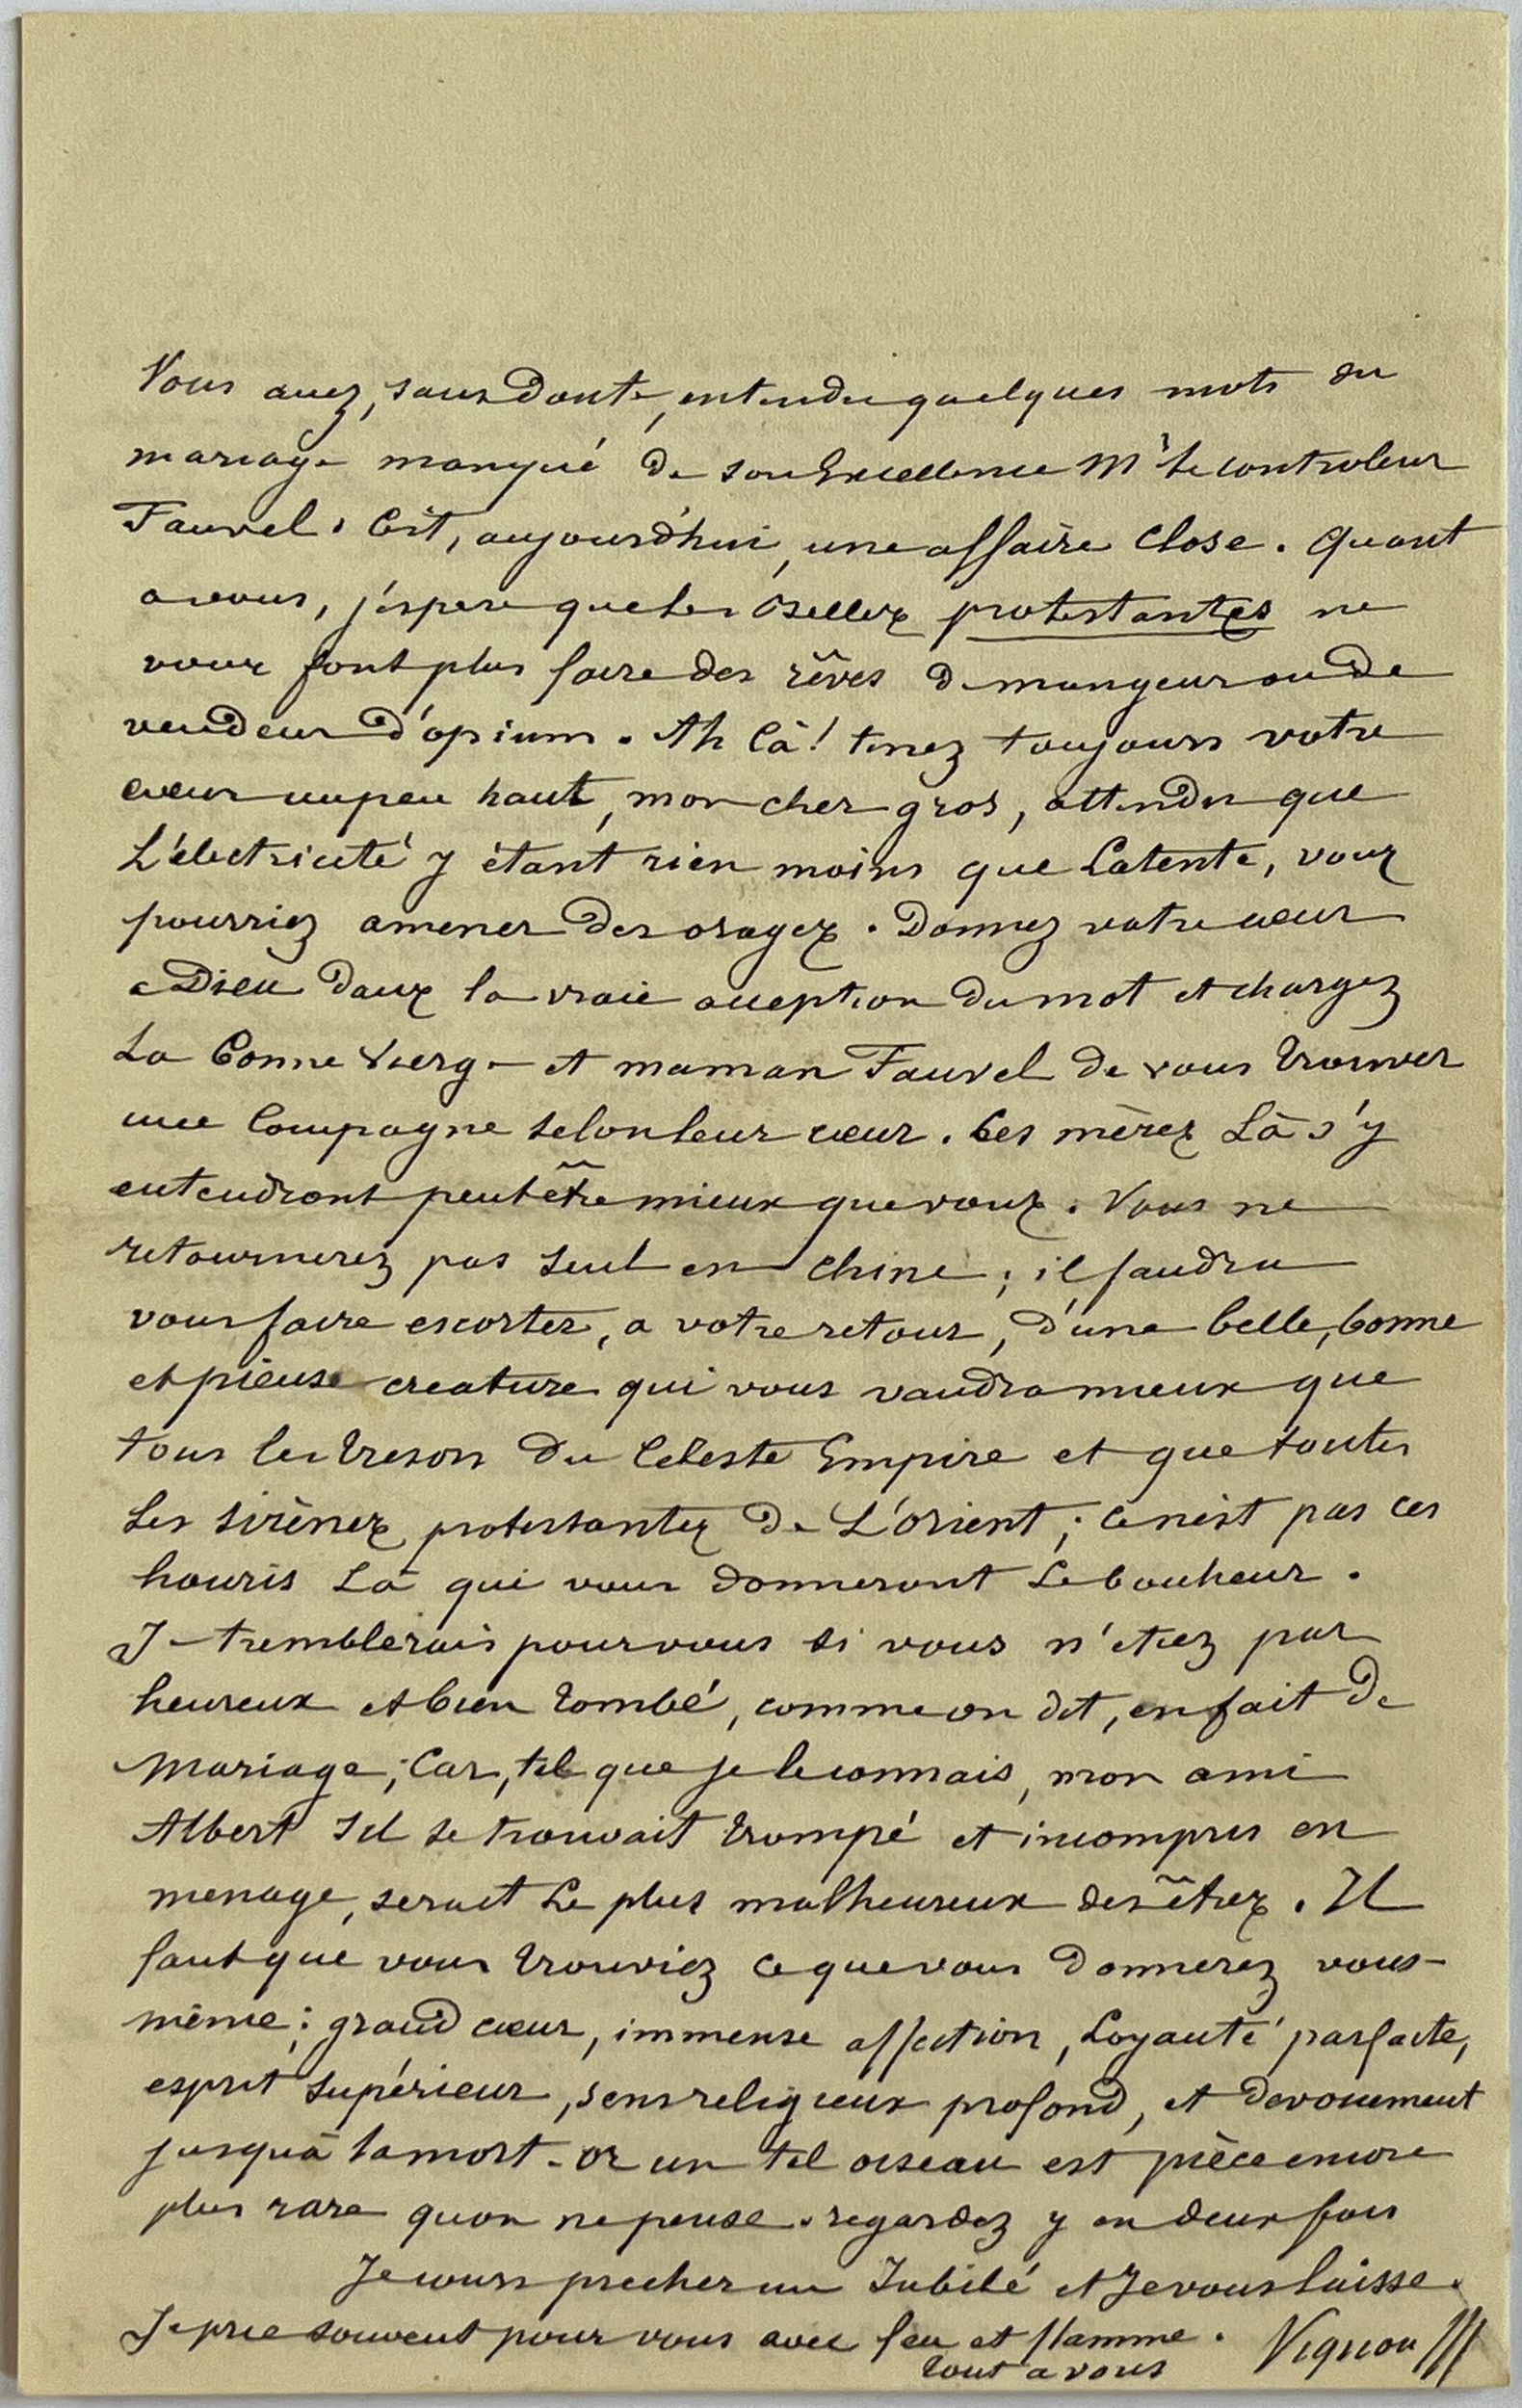 Vous avez, sans Doute, entendu quelques mots du
mariage manqué De son Excellence Mr Le controleur
Fauvel. C'est, aujourd'hui, une affaire close. Quant
a vous, j'espere que les Belles protestantes ne
vous font plus faire des rêves De mangeur ou De
vendeur D'opium. Ah Cà! tenez toujours votre
cœur un peu haut, mon cher gros, attendu que
L'électricité y étant rien moins que Latente, vous
pourriez amener Des orages. Donnez votre cœur
a Dieu Dans la vraie acception Du mot et chargez
La Bonne Vierge et maman Fauvel de vous trouver
une Compagne selon leur cœur. Ces mères Là s'y
entendront peut être mieux que vous. Vous ne
retournerez pas seul en Chine; il faudra
vous faire escorter, a votre retour, d'une belle, bonne
et pieuse creature qui vous vaudra mieux que
tous les tresors Du Celeste Empire et que toutes
Les sirènes protestantes De L'orient; ce n'est pas ces
houris Là qui vous donneront Le bonheur.
Je tremblerais pour vous si vous n'etiez pas
heureux et bien tombé, comme on dit, en fait De
Mariage; Car, tel que je le connais, mon ami
Albert s'il se trouvait trompé et incompris en
menage, serait Le plus malheureux des êtres. Il
faut que vous trouviez ce que vous Donnerez vous-
même: grand cœur, immense affection, Loyauté parfaite,
esprit supérieur, sens religieux profond, et devouement
jusqu'à la mort. or un tel oiseau est pièce encore
plus rare qu'on ne pense. regardez y en deux fois
Je cours precher un Jubilé et Je vous laisse.
Je prie souvent pour vous avec feu et flamme.
tout a vous
Vignon